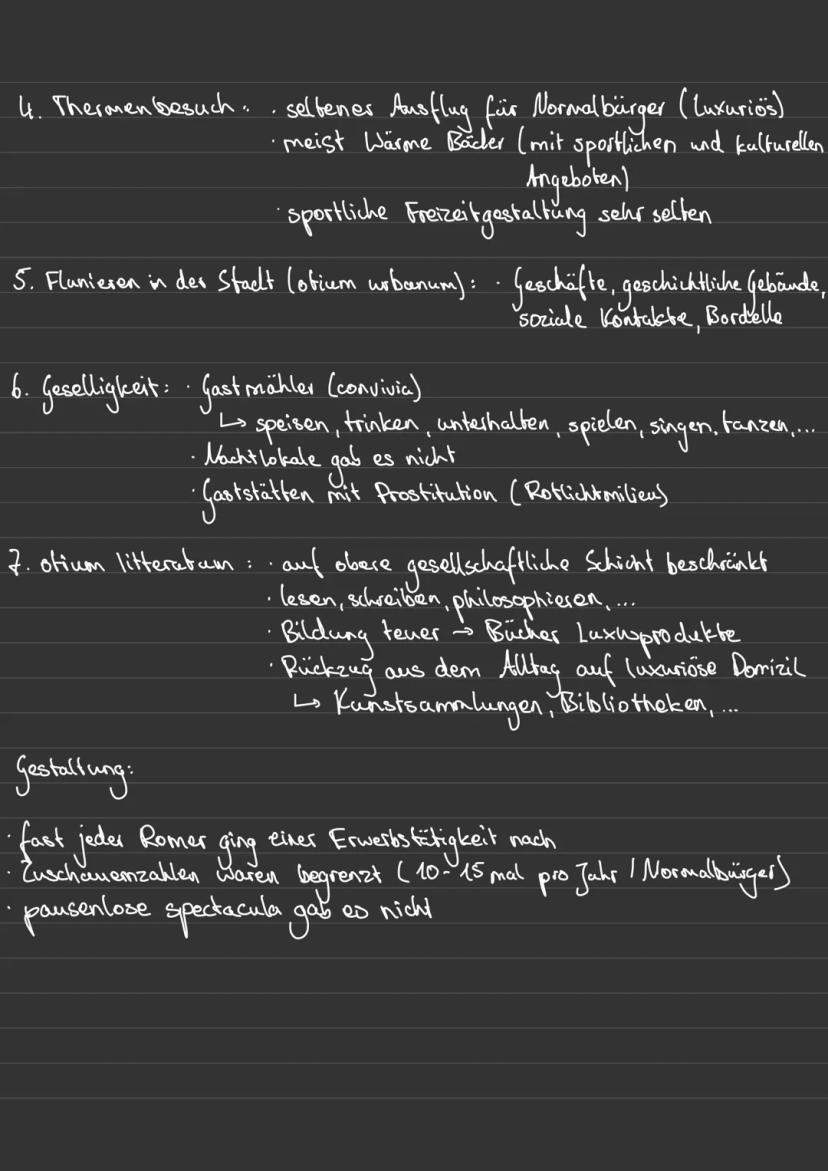 4. Thermenbesuch: · seltener Ausflug für Normalbürger (luxuriös)
· meist Wärme Bäder (mit sportlichen und kulturellen
Angeboten)
· sportliche Freizeitgestaltung sehr selten
5. Flanieren in der Stadt (otium urbanum): · Geschäfte, geschichtliche Gebäude,
soziale Kontakte, Bordelle
6. Geselligkeit: · Gastmähler (convivia)
↳ speisen, trinken, unterhalten, spielen, singen, tanzen,...
· Nachtlokale gab es nicht
· Gaststätten mit Prostitution (Rotlichtmilieu)
7. otium litteratum: · auf obere gesellschaftliche Schicht beschränkt
· lesen, schreiben, philosophieren, ...
· Bildung teuer → Bücher Luxusprodukte
· Rückzug aus dem Alltag auf luxuriöse Domizil
↳ Kunstsammlungen, Bibliotheken, ...
Gestaltung:
· fast jeder Römer ging einer Erwerbstätigkeit nach
· Zuschauerzahlen waren begrenzt (10-15 mal pro Jahr / Normalbürger)
· pausenlose spectacula gab es nicht